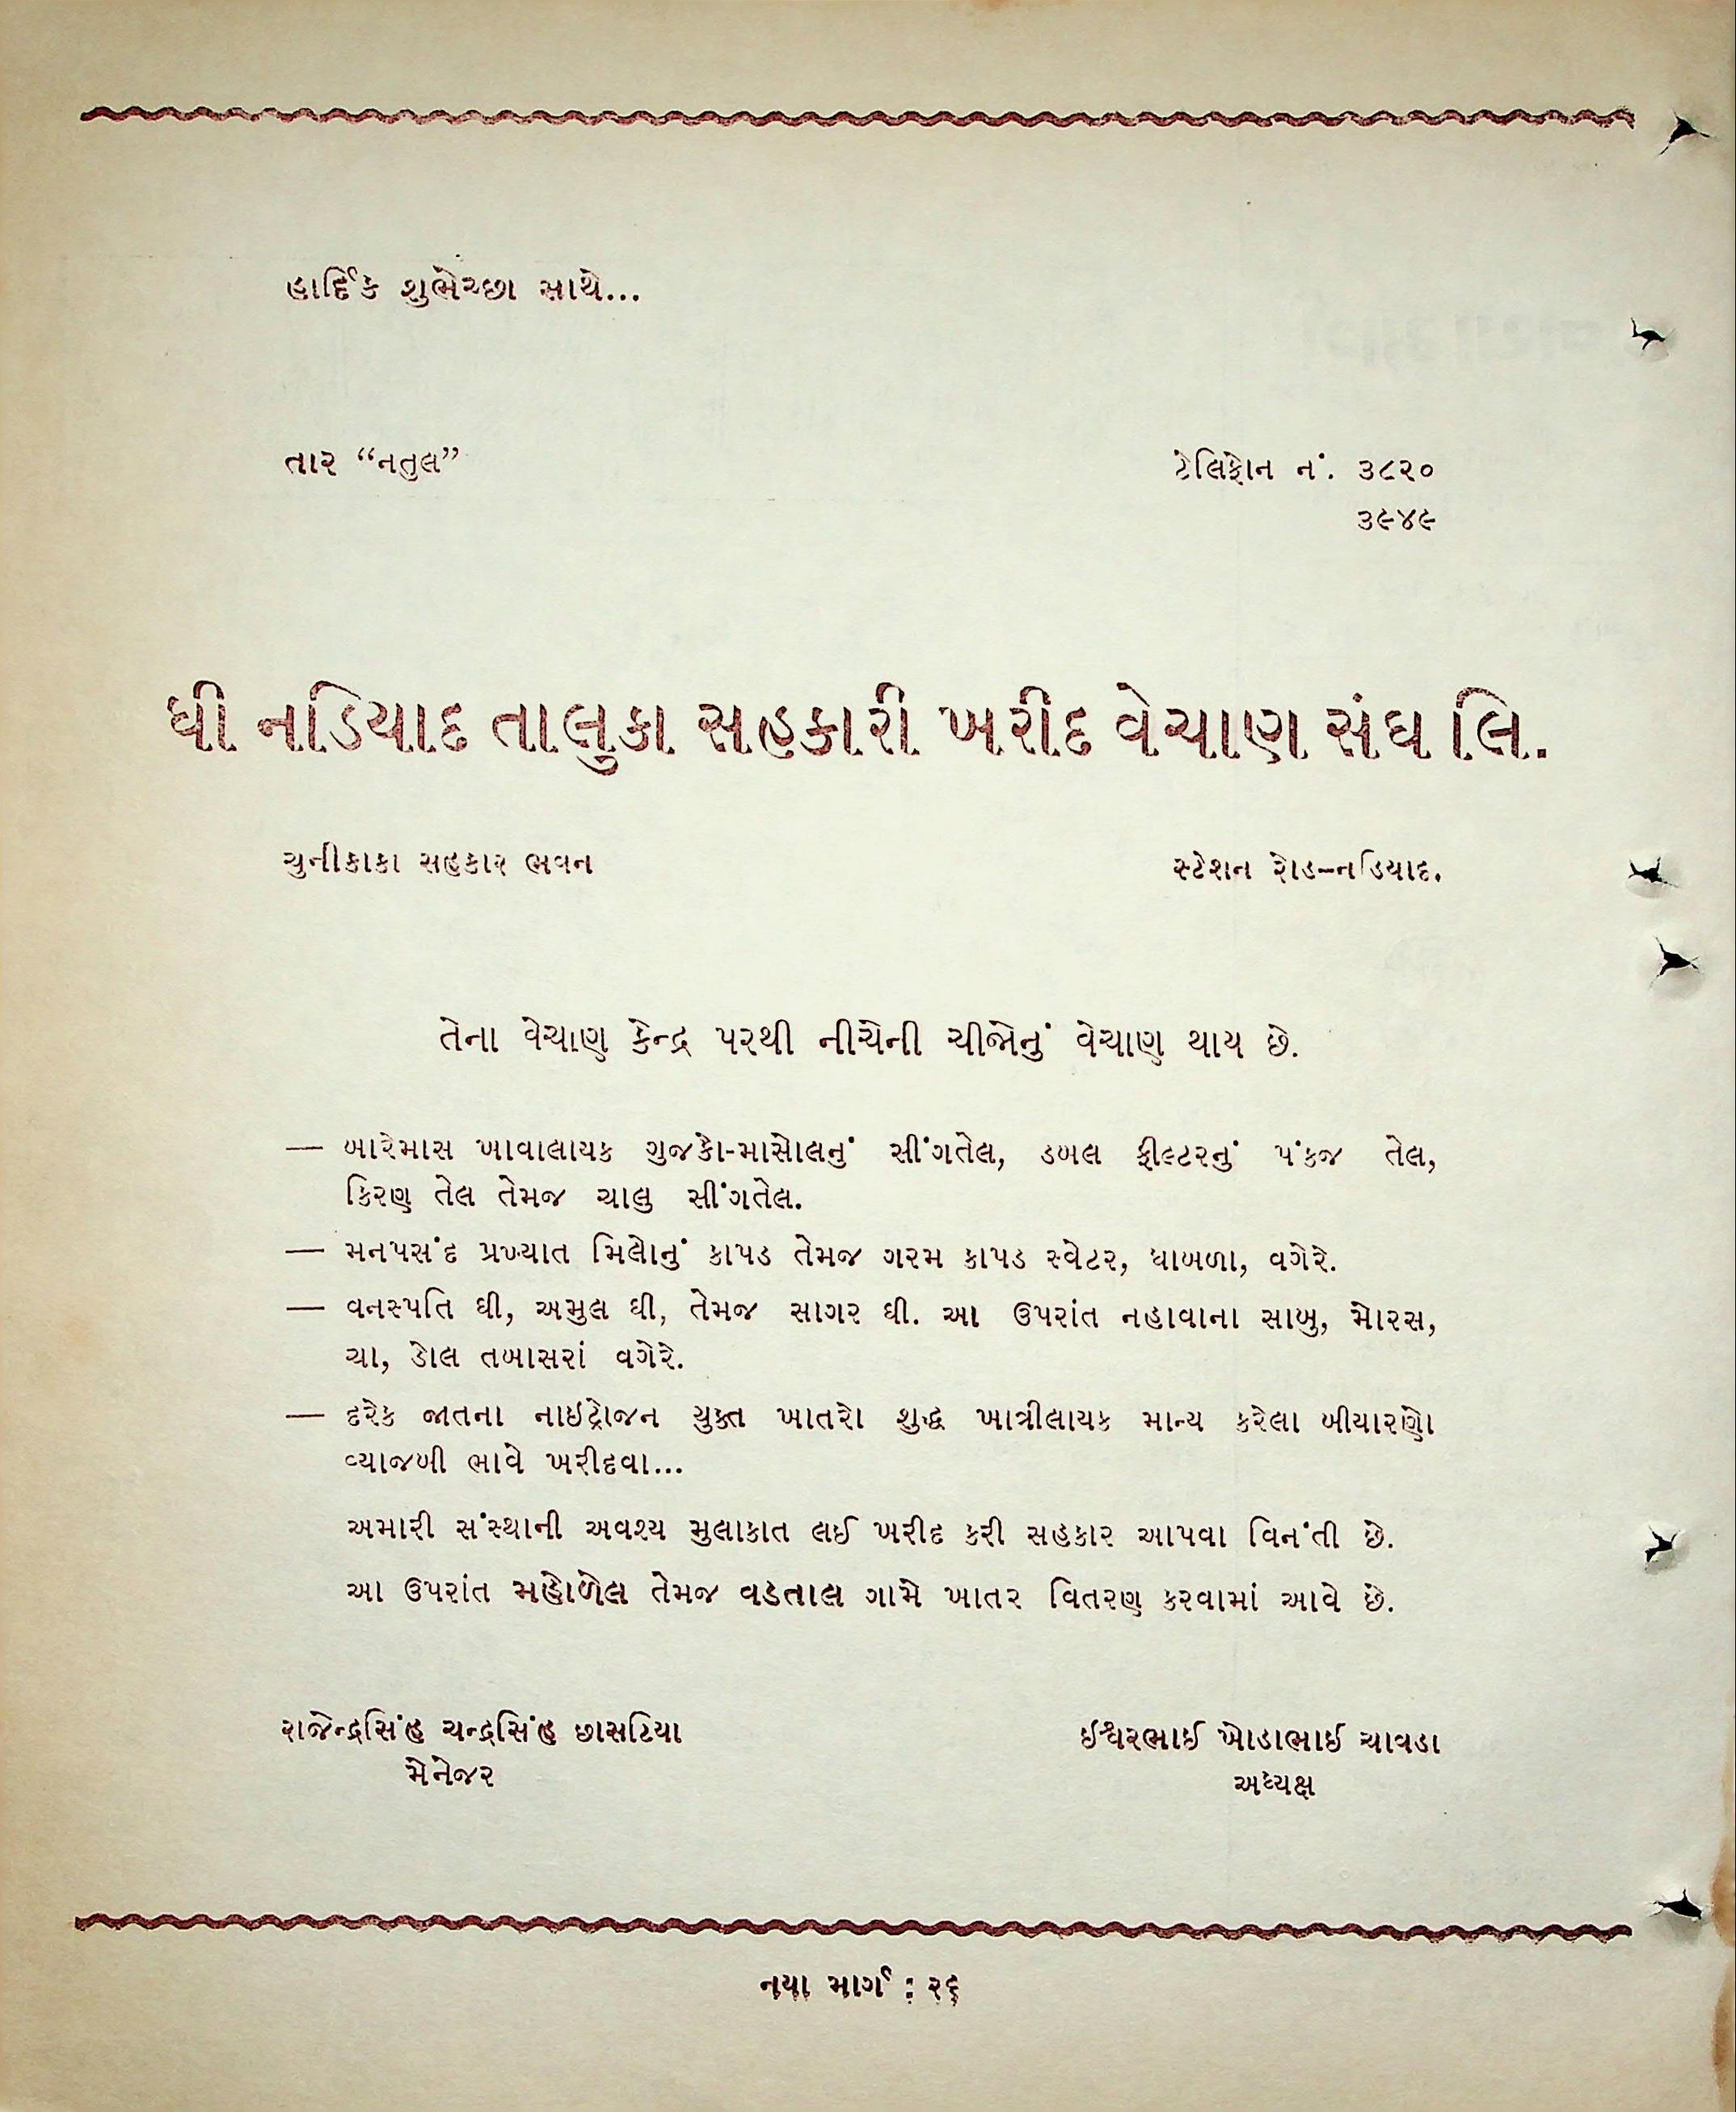 હાર્દિક શુભેચ્છા સાથે...
તાર “નતુલ”
ટેલિફોન નં. ૩૮૨૦
૩૯૪૯
ધી નડિયાદ તાલુકા સહકારી ખરીદ વેચાણ સંઘ લિ.
ચુનીકાકા સહકાર ભવન
સ્ટેશન રોડ–નડિયાદ.
તેના વેચાણ કેન્દ્ર પરથી નીચેની ચીજોનું વેચાણ થાય છે.
— બારેમાસ ખાવાલાયક ગુજકો-માસોલનું સીંગતેલ, ડબલ ફીલ્ટરનું પંકજ તેલ,
કિરણ તેલ તેમજ ચાલુ સીંગતેલ.
— મનપસંદ પ્રખ્યાત મિલોનું કાપડ તેમજ ગરમ કાપડ સ્વેટર, ધાબળા, વગેરે.
— વનસ્પતિ ઘી, અમુલ ઘી, તેમજ સાગર ઘી. આ ઉપરાંત નહાવાના સાબુ, મોરસ,
ચા, ડોલ તબાસરાં વગેરે.
— દરેક જાતના નાઇટ્રોજન યુક્ત ખાતરો શુદ્ધ ખાત્રીલાયક માન્ય કરેલા બીયારણો
વ્યાજબી ભાવે ખરીદવા...
અમારી સંસ્થાની અવશ્ય મુલાકાત લઈ ખરીદ કરી સહકાર આપવા વિનંતી છે.
આ ઉપરાંત મહોળેલ તેમજ વડતાલ ગામે ખાતર વિતરણ કરવામાં આવે છે.
રાજેન્દ્રસિંહ ચન્દ્રસિંહ છાસટિયા
મેનેજર
ઈશ્વરભાઈ ખોડાભાઈ ચાવડા
અધ્યક્ષ
નયા માર્ગ : ૨૬